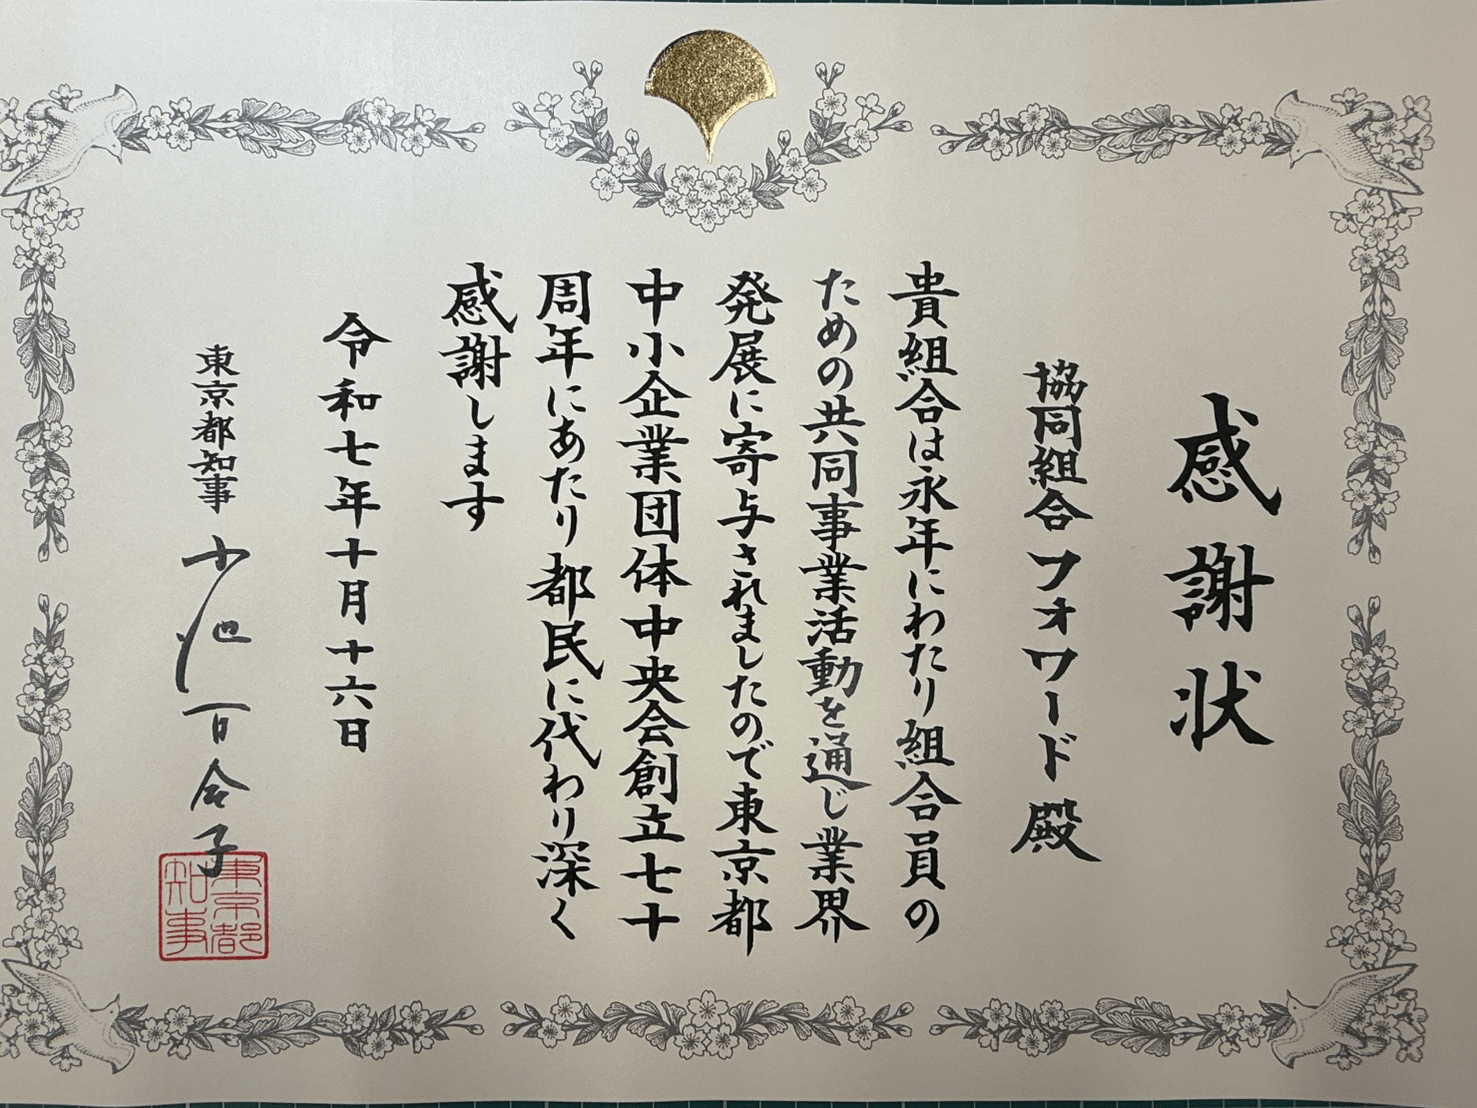 感謝状
協同組合フォワード 殿
貴組合は永年にわたり組合員の
ための共同事業活動を通じ業界
発展に寄与されましたので東京都
中小企業団体中央会創立七十
周年にあたり都民に代わり深く
感謝します
令和七年十月十六日
東京都知事 小池百合子
東京都
知事